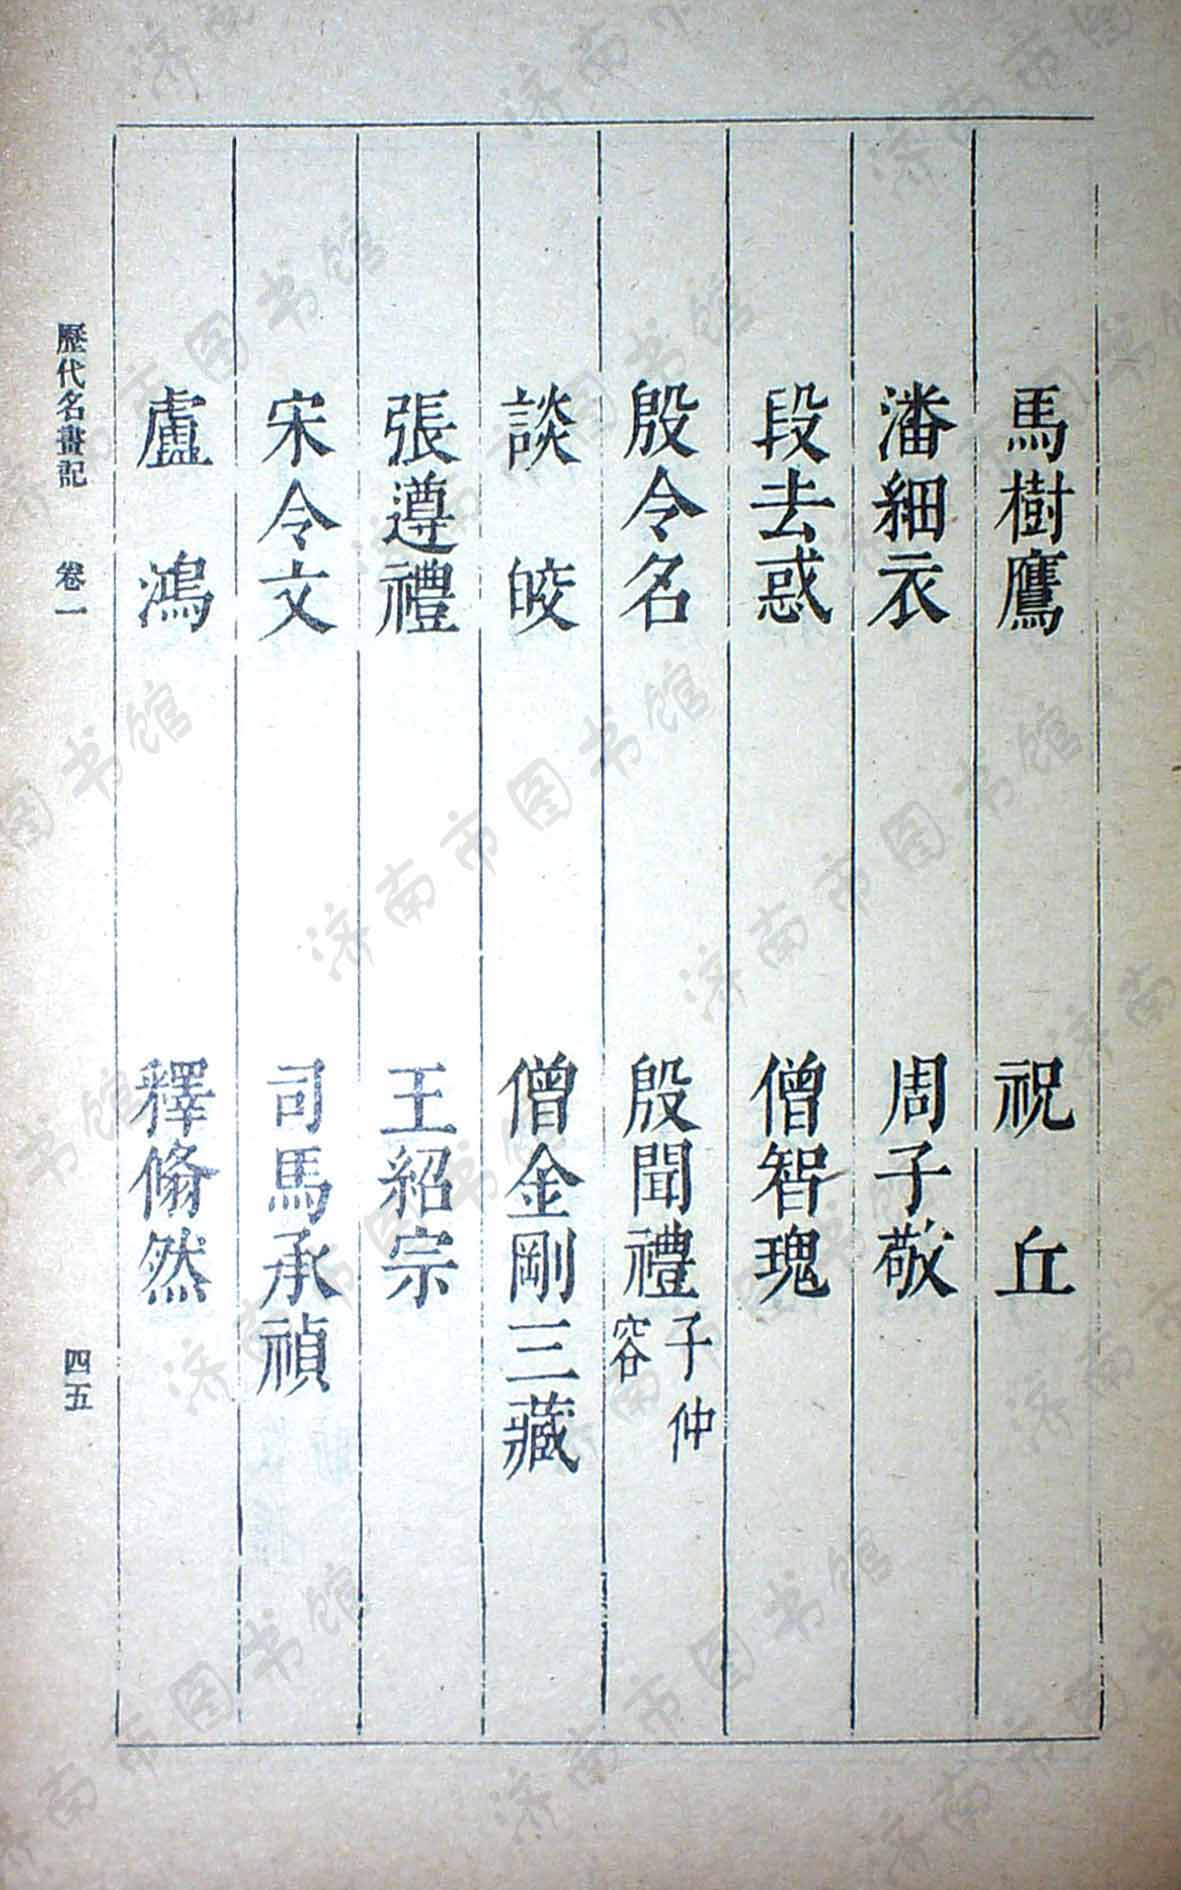 馬樹鷹　祝丘
潘細衣　周子敬
段去惑　僧智瑰
殷令名　殷聞禮子仲容
談皎　僧金剛三藏
張遵禮　王紹宗
宋令文　司馬承禎
盧鴻　釋翛然
歷代名畫記　卷一　四五
济南市图书馆